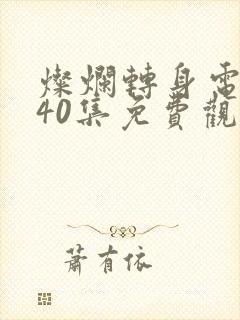 燦爛轉身電
40集免費觀
蕭有依